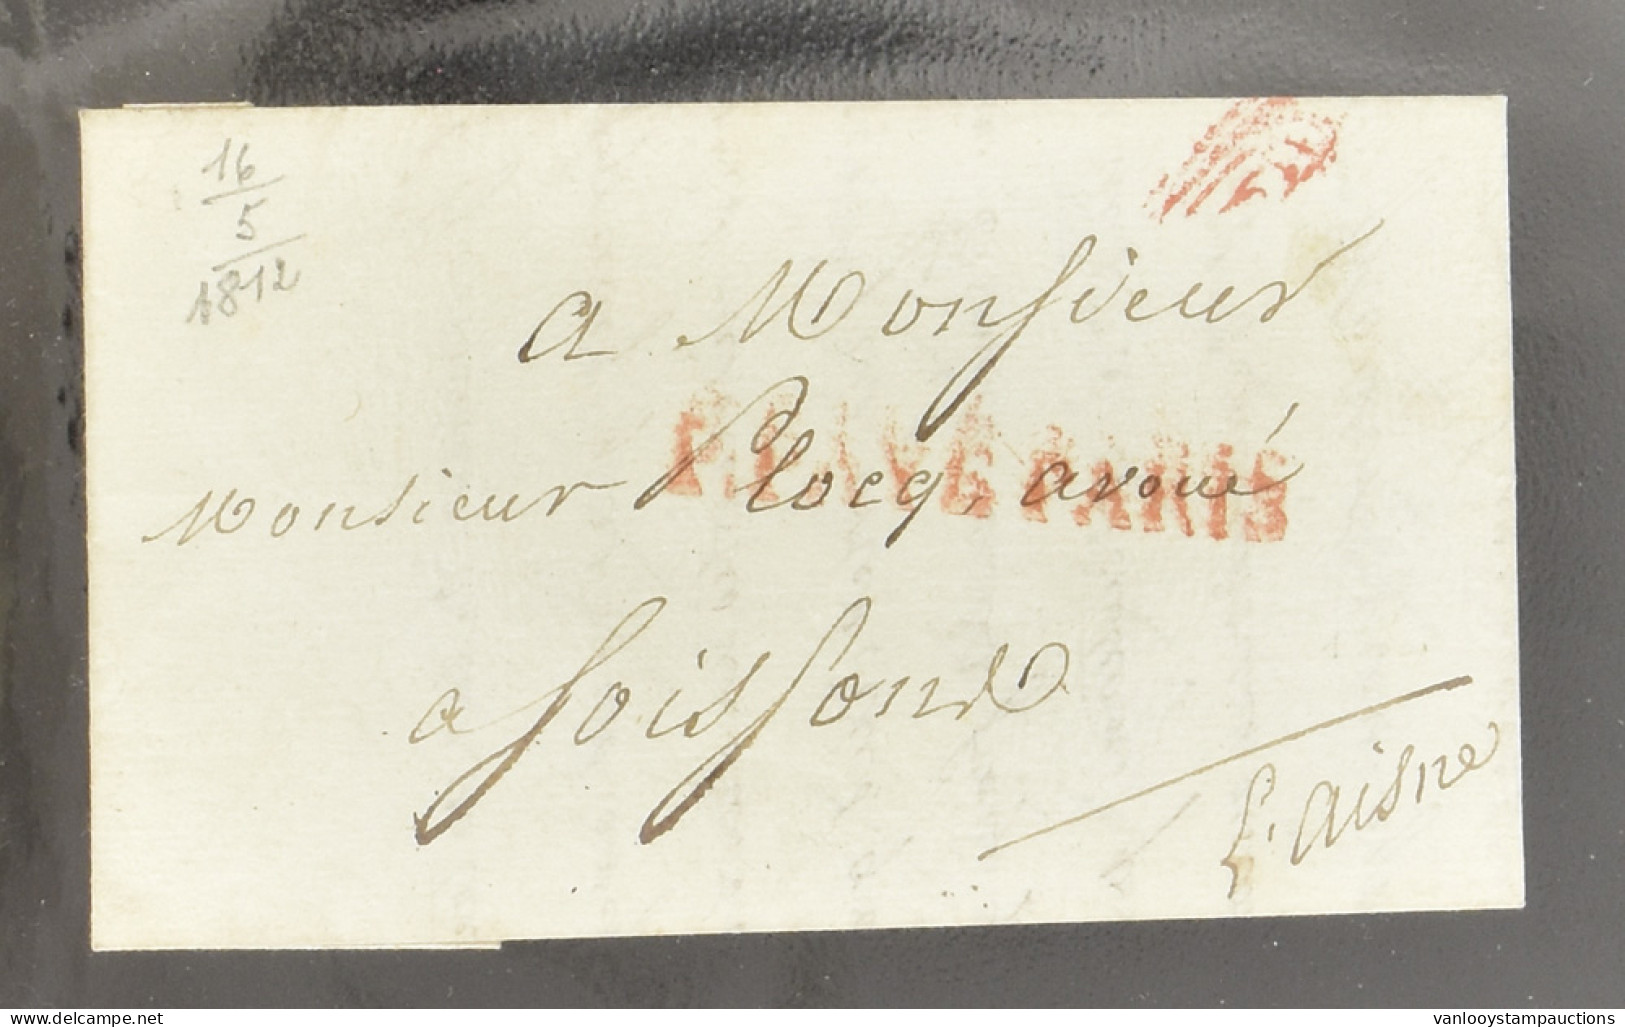 16
5
1812
a Monsieur
P.PAYÉ PARIS
Monsieur Plocq, avoué
a Soissons
D. aisne
www.delcampe.net
vanlooystampauctions